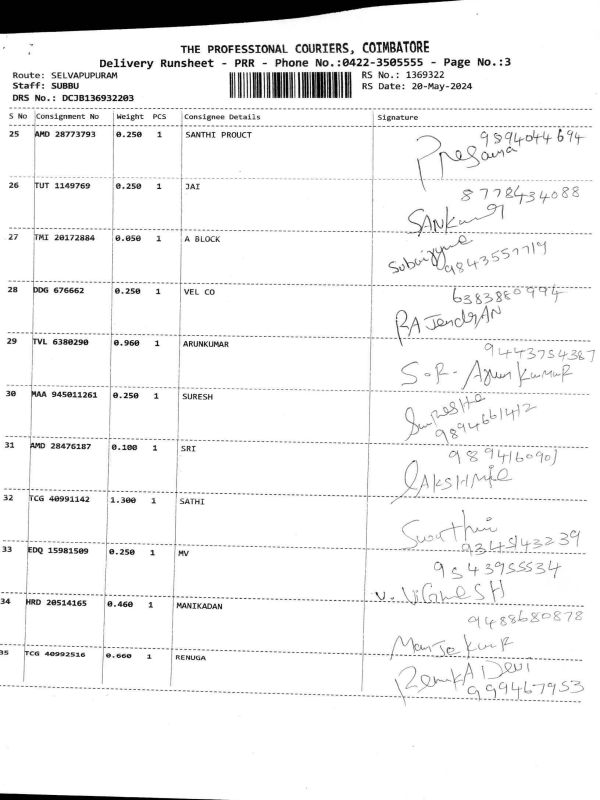 THE PROFESSIONAL COURIERS, COIMBATORE
Delivery Runsheet - PRR - Phone No.:0422-3505555 - Page No.:3
Route: SELVAPUPURAM RS No.: 1369322
Staff: SUBBU RS Date: 20-May-2024
DRS No.: DCJB136932203
S No Consignment No Weight PCS Consignee Details Signature
25 AMD 28773793 0.250 1 SANTHI PROUCT 9894044694
26 TUT 1149769 0.250 1 JAI 8778434088
27 TMI 20172884 0.050 1 A BLOCK
9843557719
28 DDG 676662 0.250 1 VEL CO 6383880994
RAJendRAN
29 TVL 6380290 0.960 1 ARUNKUMAR 9443754387
S.R. Arun KumaR
30 MAA 945011261 0.250 1 SURESH
9894661412
31 AMD 28476187 0.100 1 SRI 9894160901
32 TCG 40991142 1.300 1 SATHI
9345143239
33 EDQ 15981509 0.250 1 MV 9543955534
V. ViGNESH
34 HRD 20514165 0.460 1 MANIKADAN 9488680878
35 TCG 40992516 0.660 1 RENUGA RenukA Devi
999467953